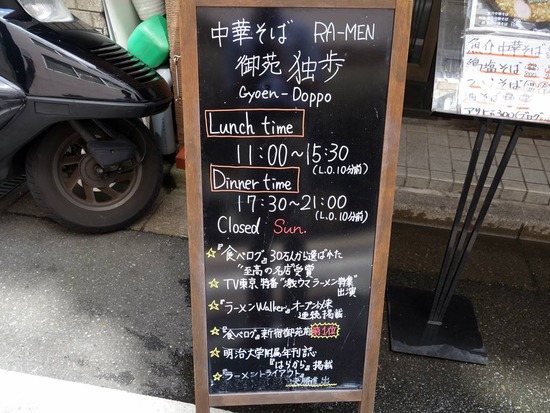 中華そば RA-MEN
御苑 独歩
Gyoen-Doppo
Lunch time
11:00~15:30
(L.O.10分前)
Dinner time
17:30~21:00
(L.O.10分前)
Closed Sun.
☆『食べログ』30万人から選ばれた
"至高の名店"受賞
☆TV東京 特番"激ウマラーメン特集"
出演
☆『ラーメンWalker』オープン以来
連続掲載
☆『食べログ』新宿御苑前第1位
☆明治大学附属年刊誌
『はらから』掲載
☆『ラーメントライアウト』
決勝進出
魚介中華そば
鶏塩そば